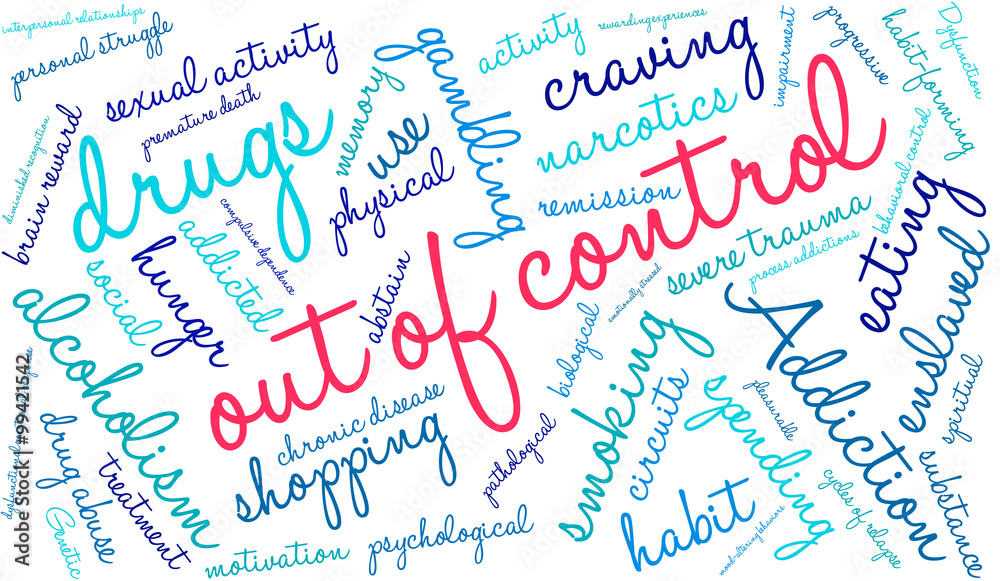 interpersonal relationships
personal struggle
sexual activity
premature death
drugs
diminished recognition
brain reward
memory
use
physical
gambling
activity
rewarding experiences
craving
narcotics
remission
impairment
progressive
habit-forming
Dysfunction
behavioral control
out of control
compulsive dependence
addicted
hunger
social
abstain
alcoholism
severe trauma
process addictions
emotionally stressed
eating
enslaved
Addiction
biological
smoking
circuits
spending
pleasurable
spiritual
substance
cycles of relapse
chronic disease
shopping
pathological
habit
mood-altering behaviors
psychological
motivation
treatment
drug abuse
Genetic
dysfunctional
Adobe Stock | #99421542
Adobe Stock